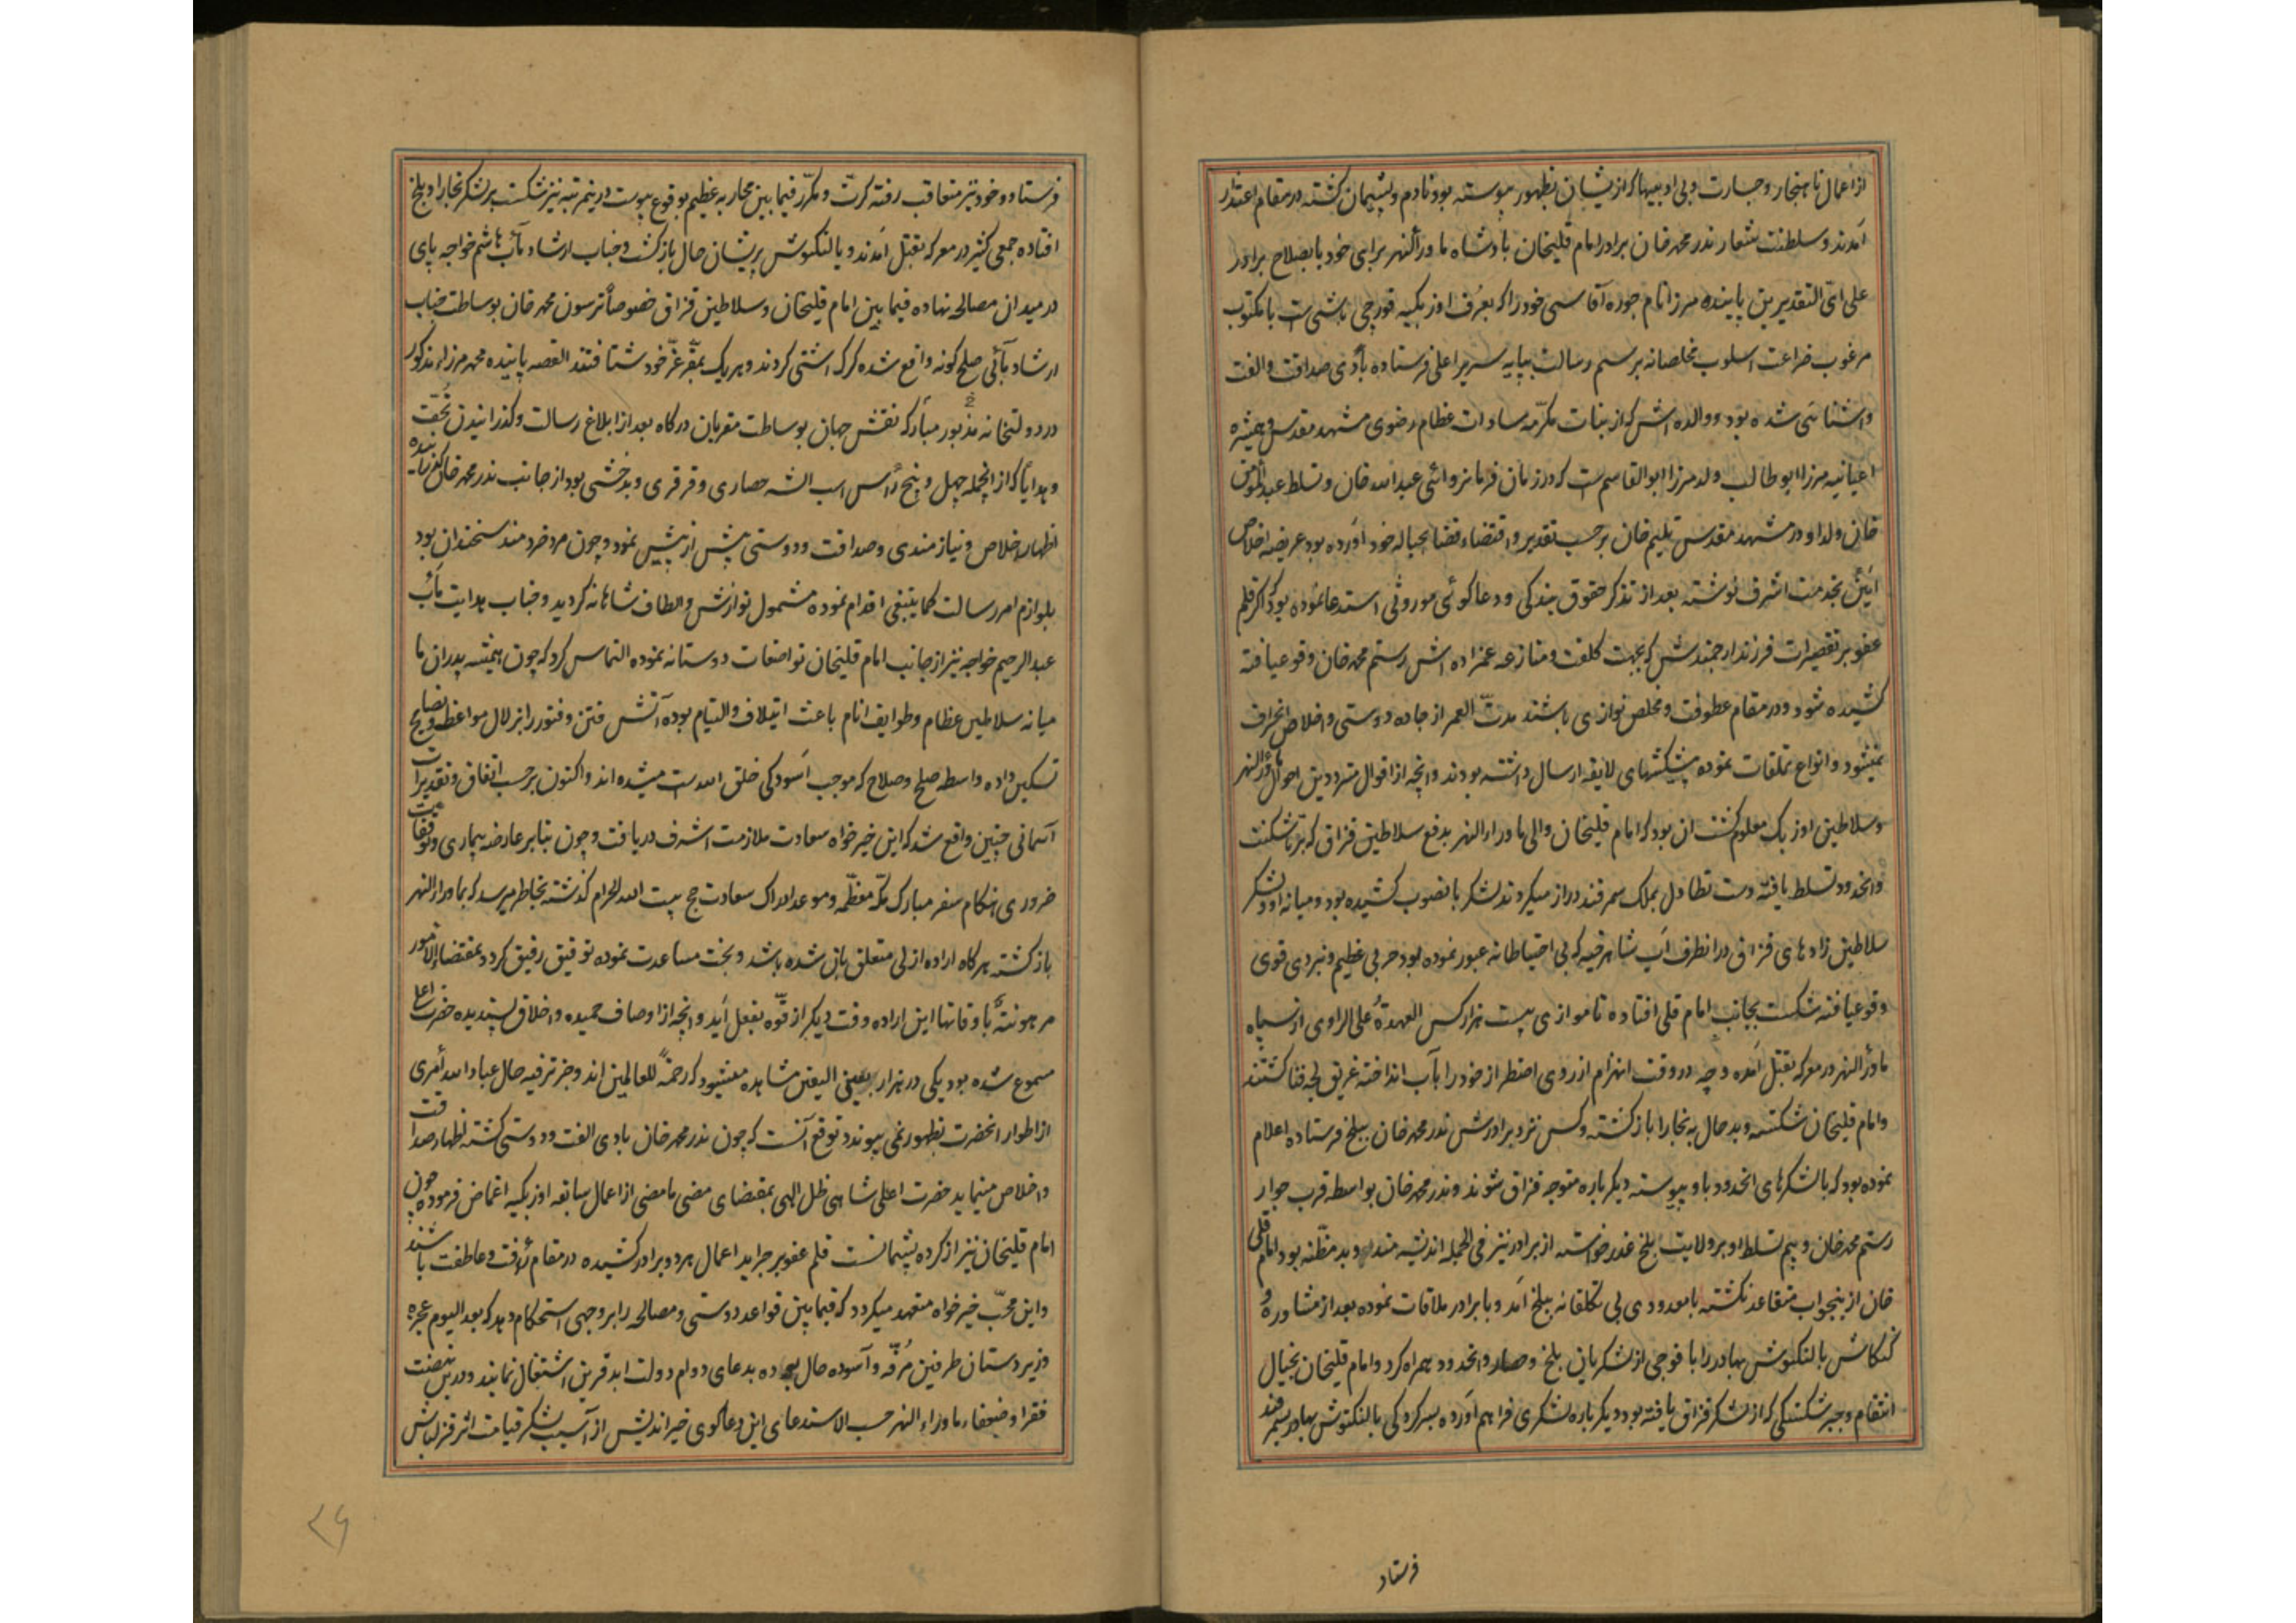 از اعمال ناهنجار و جسارت و بی ادبیها که ازیشان بظهور پیوسته بود نادم و پشیمان کشته در مقام اعتذار
آمدند و سلطنت شعار ندر محمد خان برادر امام قلیخان پادشاه ماورأالنهر برایی خود یا بصلاح برادر
علی ایّ التقدیرین پاینده میرزا نام جوره آقاسی خود را که بعرف اوزبکیه قورچی باشی است با مکتوب
مرغوب ضراعت اسلوب مخلصانه برسم رسالت بپایه سریر اعلی فرستاده بادی صداقت و الفت
و اشنائی شده بود و والده اش که از بنات مکرّمه سادات عظام رضوی مشهد مقدس و همشیره
اعیانیه میرزا ابوطالب ولد میرزا ابوالقاسم است که در زمان فرمانروائی عبدالله خان و تسلط عبدالمؤمن
خان ولد او در مشهد مقدس تلیم خان برحسب تقدیر و اقتضاء قضا بحباله خود آورده بود عریضه اخلاص
آیین بخدمت اشرف نوشته بعد از تذکر حقوق بندکی و دعاکوئی موروثی استدعا نموده بود که اکر قلم
عفو بر تقصیرات فرزند ارجمندش که بجهت کلفت و منازعه عمزاده اش رستم محمد خان وقوعیافته
کشیده شود و در مقام عطوفت و مخلص نوازی باشند مدت العمر از جاده دوستی و اخلاص انحراف
نمیشود و انواع تملقات نموده پیشکشهای لایقه ارسال داشته بودند و انچه از اقوال مترددین احوال ماورأالنهر
و سلاطین اوزبک معلوم کشت آن بود که امام قلیخان والی ماوراءالنهر بدفع سلاطین قزاق که بر تاشکنت
و انحدود تسلط یافته دست تطاول بملک سمرقند دراز میکردند لشکر بانصوب کشیده بود و میانه او و لشکر
سلاطین زادهای قزاق در انطرف آب شاهرخیه که بی احتیاطانه عبور نموده بود حربی عظیم و نبردی قوی
وقوعیافته شکست بجانب امام قلی افتاده تا موازی بیست هزار کس العهدةُ علی الراوی از سپاه
ماورأالنهر در معرکه بقتل آمده و چه در وقت انهزام از روی اضطرار خود را بآب انداخته غریق لجه فنا کشتند
و امام قلیخان شکسته و بدحال به بخارا بازکشته و کس نزد برادرش ندر محمد خان ببلخ فرستاده اعلام
نموده بود که با لشکرهای انحدود باو پیوسته دیکرباره متوجه قزاق شوند و ندر محمد خان بواسطه قرب جوار
رستم محمد خان و بیم تسلط او بر ولایت بلخ عذر خواسته از برادر نیز فی الجمله اندیشه مند و بدمظنّه بود امام قلی
خان از ینجواب متقاعد نکشته با معدودی بی تکلفانه ببلخ آمد و با برادر ملاقات نموده بعد از مشاوره و
کنکاش یالنکتوش بهادر را با فوجی از لشکریان بلخ و حصار و انحدود همراه کرد و امام قلیخان بخیال
انتقام و جبر شکستکی که از لشکر قزاق یافته بود دیکرباره لشکری فراهم آورده بسرکردکی یالنکتوش بهادر بسمرقند
فرستاد
فرستاد و خود نیز متعاقب رفته کرّت و مکرّر فیما بین محاربه عظیم بوقوع پیوست درینمرتبه نیز شکست بر لشکر بخارا و بلخ
افتاده جمعی کثیر در معرکه بقتل آمدند و یالنکتوش پریشان حال بازکشت و جناب ارشاد مآب هاشم خواجه پای
در میدان مصالحه نهاده فیما بین امام قلیخان و سلاطین قزاق خصوصاً ترسون محمد خان بوساطت جناب
ارشاد مآبی صلح کونه واقع شده کرک اشتی کردند و هریک بمقرّ عزّ خود شتافتند القصه پاینده محمد میرزاء مذکور
در دولتخانه مذبور مبارکه نقش جهان بوساطت مقربان درکاه بعد از ابلاغ رسالت و کذرانیدن تحف
و هدایا که از انجمله چهل و پنج رأس اسب الشه حصاری و قرقری و بدخشی بود از جانب ندر محمد خان کذرانیده
اظهار اخلاص و نیازمندی و صداقت و دوستی پیش از پیش نمود و چون مرد خردمند سخندان بود
بلوازم امر رسالت کما ینبغی اقدام نموده مشمول نوازش و الطاف شاهانه کردید و جناب هدایت مآب
عبدالرحیم خواجه نیز از جانب امام قلیخان تواضعات دوستانه نموده التماس کرد که چون همیشه پدران ما
میانه سلاطین عظام و طوایف انام باعث ایتلاف و التیام بوده آتش فتن و فتور را بزلال مواعظ و نصایح
تسکین داده واسطه صلح و صلاح که موجب آسودکی خلق الله است میشده اند و اکنون برحسب اتفاق و تقدیرات
آسمانی چنین واقع شد که این خیرخواه سعادت ملازمت اشرف دریافت و چون بنابر عارضه بیماری و توقفات
ضروری هنکام سفر مبارک مکّه معظّمه و موعد ادراک سعادت حج بیت الله الحرام کذشته بخاطر میرسد که بماوراءالنهر
بازکشته هرکاه اراده ازلی متعلق بان شده باشد و بخت مساعدت نموده توفیق رفیق کردد بمقتضاء الامور
مرهونةٌ باوقاتها این اراده وقت دیکر از قوّه بفعل آید و انچه از اوصاف حمیده و اخلاق پسندیده حضرت اعلی
مسموع شده بود یکی در هزار بعین الیقین مشاهده میشود که رحمةً للعالمین اند و جز ترفیه حال عباد الله امری
از اطوار انحضرت بظهور نمی پیوندد توقع آنست که چون ندر محمد خان بادی الفت و دوستی کشته اظهار صداقت
و اخلاص مینماید حضرت اعلی شاهی ظل الهی بمقتضای مضی مامضی از اعمال سابقه اوزبکیه اغماض فرموده چون
امام قلیخان نیز از کرده پشیمانست قلم عفو بر جراید اعمال هر دو برادر کشیده در مقام رأفت و عاطفت باشند
و این محبّ خیرخواه متعهد میکردد که فیما بین قواعد دوستی و مصالحه را بر وجهی استحکام دهد که بعد الیوم عجزه
و زیردستان طرفین مرفّه و آسوده حال بوده بدعای دوام دولت ابدقرین اشتغال نمایند و درین نهضت
فقرا و ضعفاء ماوراء النهر حسب الاستدعای این دعاکوی خیراندیش از آسیب لشکر قیامت اثر قزلباش
۲۶